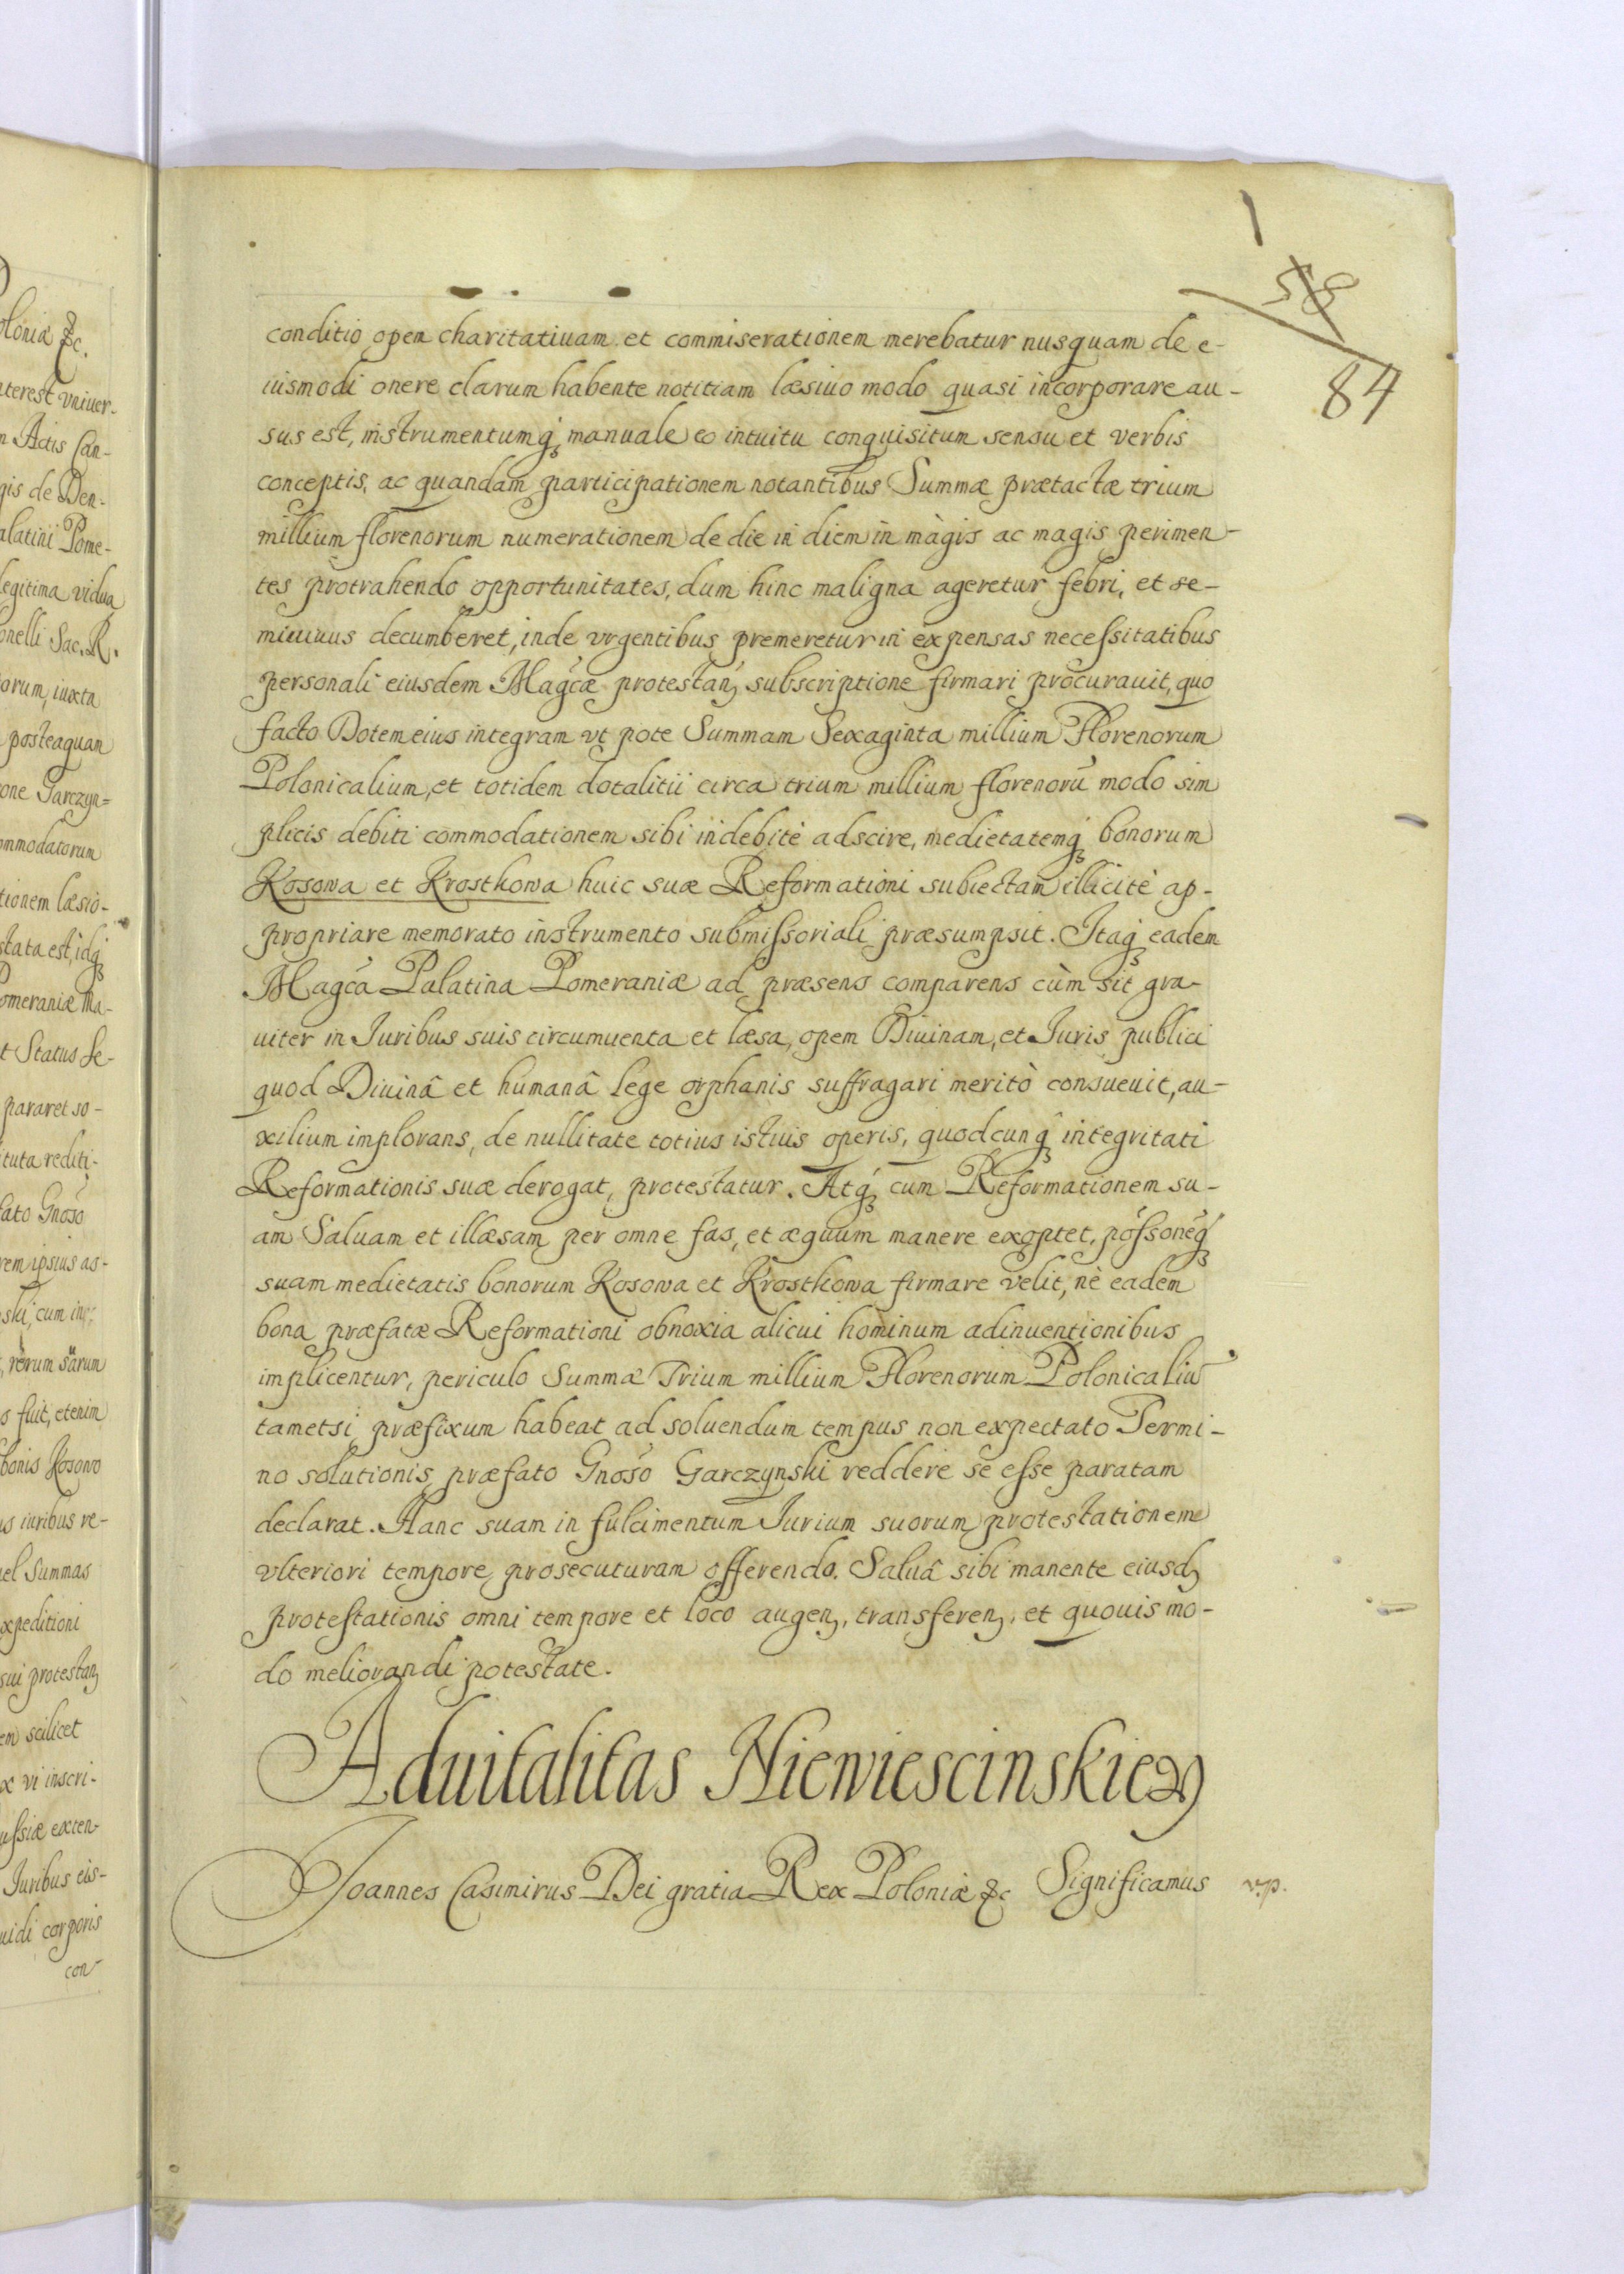 1
58
84
conditio opem charitatiuam et commiserationem merebatur nusquam de e-
iusmodi onere clarum habente notitiam læsiuo modo quasi incorporare au-
sus est, instrumentumq; manuale eo intuitu conquisitum sensu et verbis
conceptis, ac quandam participationem notantibus Summæ prætactæ trium
millium florenorum numerationem de die in diem in màgis ac magis perimen-
tes protrahendo opportunitates, dum hinc maligna ageretur febri, et se-
miuiuus decumberet, inde vrgentibus premeretur in expensas necessitatibus
personali eiusdem Magcæ protestan; subscriptione firmari procurauit, quo
facto Dotem eius integram vt pote Summam Sexaginta millium Florenorum
Polonicalium, et totidem dotalitii circa trium millium florenorũ modo sim
plicis debiti commodationem sibi indebitè adscire, medietatemq; bonorum
Kosowa et Krostkowa huic suæ Reformationi subiectam illicitè ap-
propriare memorato instrumento submissoriali præsumpsit. Itaq; eadem
Magca Palatina Pomeraniæ ad præsens comparens cùm sit gra-
uiter in Iuribus suis circumuenta et læsa, opem Diuinam, et Iuris publici
quod Diuinâ et humanâ lege orphanis suffragari meritò consueuit, au-
xilium implorans, de nullitate totius istius operis, quodcunq; integritati
Reformationis suæ derogat, protestatur. Atq; cum Reformationem su-
am Saluam et illæsam per omne fas, et æquum manere exoptet, possonẽq;
suam medietatis bonorum Kosowa et Krostkowa firmare velit, nè eadem
bona præfatæ Reformationi obnoxia alicui hominum adinuentionibus
implicentur, periculo Summæ Trium millium Florenorum Polonicaliũ
tametsi præfixum habeat ad soluendum tempus non expectato Termi-
no solutionis præfato Gnoso Garczynski reddere se esse paratam
declarat. Hanc suam in fulcimentum Iurium suorum protestationem
vlteriori tempore prosecuturam offerendo. Saluâ sibi manente eiusd;
protestationis omni tempore et loco augen;, transferen;, et quouis mo-
do meliorandi potestate.
Aduitalitas Niewiescinskieʒ
Joannes Casimirus Dei gratia Rex Poloniæ &c Significamus v.p.